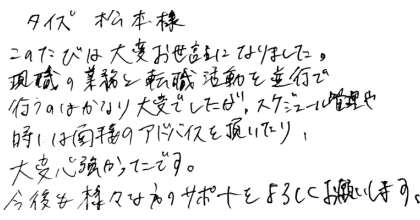 タイズ 松本様
このたびは大変お世話になりました。
現職の業務と転職活動を並行で
行うのはかなり大変でしたが、スケジュール管理や
時には面接のアドバイスを頂いたり、
大変心強かったです。
今後も様々な方のサポートをよろしくお願いします。